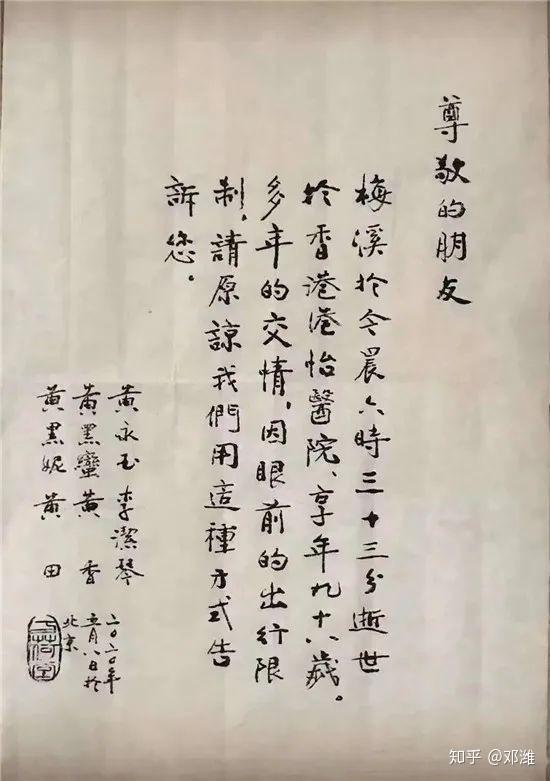 尊敬的朋友
梅溪於今晨六時三十三分逝世
於香港港怡醫院、享年九十八歲。
多年的交情，因眼前的出行限
制，請原諒我們用這種方式告
訴您。
黄永玉 李潔琴
黄黑蠻 黄香
黄黑妮 黄田
二〇二〇年
五月八日於
北京
知乎 @邓潍